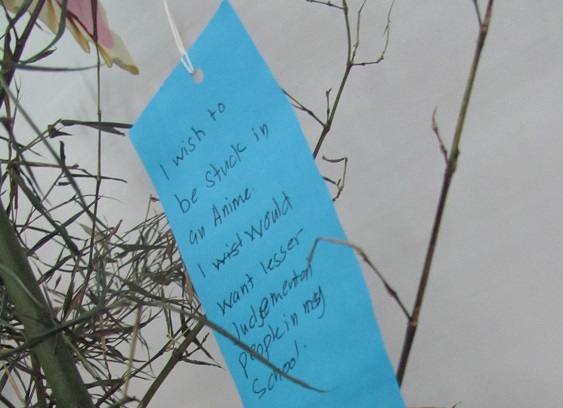 I wish to
be stuck in
an Anime.
I wist would
want lesser
Judgemental
people in my
School.